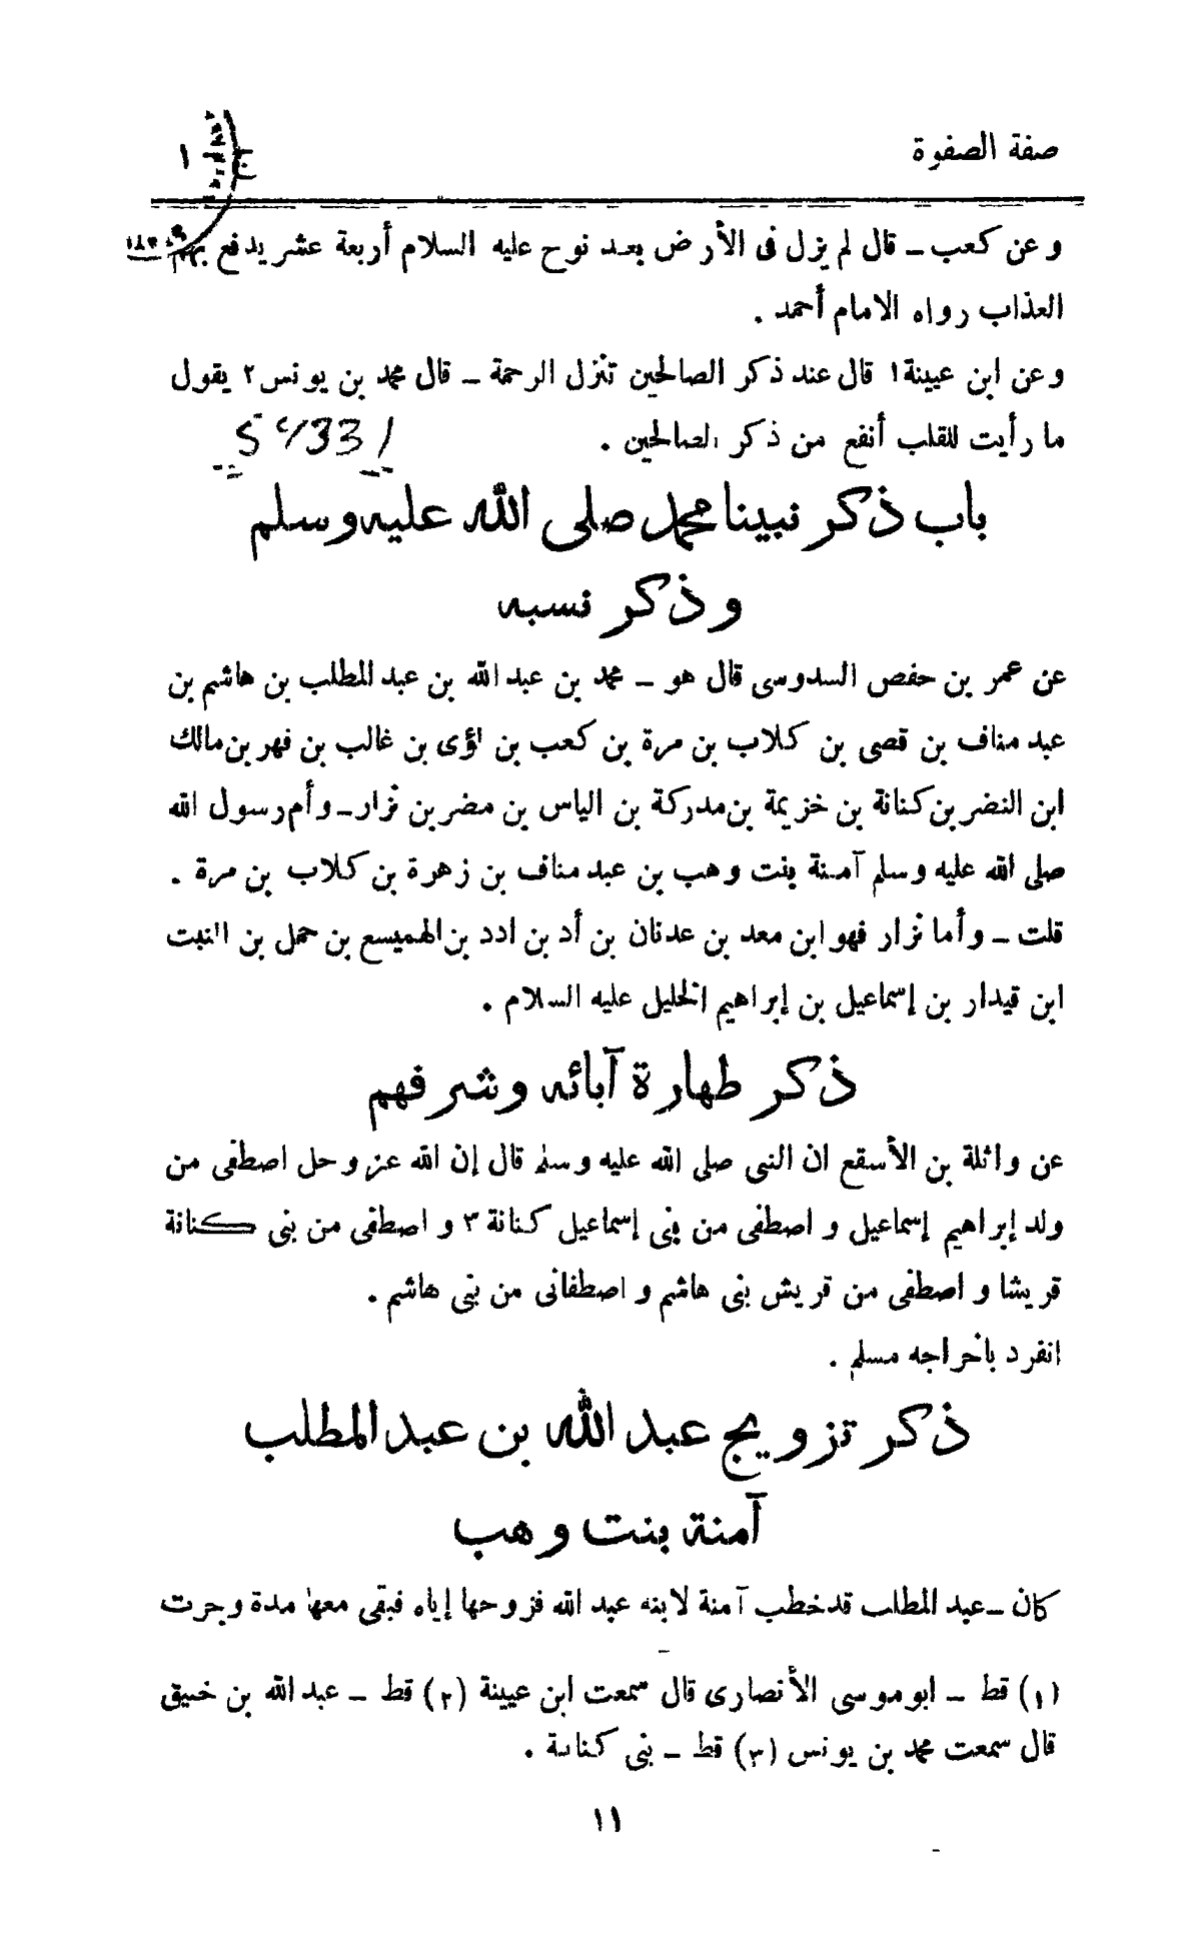 صفة الصفوة
ج - ١
وعن كعب ــ قال لم يزل فى الأرض بعد نوح عليه السلام أربعة عشر يدفع بهم
العذاب رواه الامام أحمد .
وعن ابن عيينة١ قال عند ذكر الصالحين تنزل الرحمة ــ قال محمد بن يونس٢ يقول
ما رأيت للقلب أنفع من ذكر الصالحين .
باب ذكر نبينا محمد صلى الله عليه وسلم
وذكر نسبه
عن عمر بن حفص السدوسى قال هو ــ محمد بن عبد الله بن عبد المطلب بن هاشم بن
عبد مناف بن قصى بن كلاب بن مرة بن كعب بن لؤى بن غالب بن فهر بن مالك
ابن النضر بن كنانة بن خزيمة بن مدركة بن الياس بن مضر بن نزار ــ وأم رسول الله
صلى الله عليه وسلم آمنة بنت وهب بن عبد مناف بن زهرة بن كلاب بن مرة .
قلت ــ وأما نزار فهو ابن معد بن عدنان بن أد بن ادد بن الهميسع بن حمل بن النبت
ابن قيدار بن إسماعيل بن إبراهيم الخليل عليه السلام .
ذكر طهارة آبائه وشرفهم
عن واثلة بن الأسقع ان النبى صلى الله عليه وسلم قال إن الله عز وجل اصطفى من
ولد إبراهيم إسماعيل و اصطفى من بنى إسماعيل كنانة ٣ و اصطفى من بنى كنانة
قريشا و اصطفى من قريش بنى هاشم و اصطفانى من بنى هاشم .
انفرد باخراجه مسلم .
ذكر تزويج عبد الله بن عبد المطلب
آمنة بنت وهب
كان ــ عبد المطلب قد خطب آمنة لابنه عبد الله فزوجها إياه فبقى معها مدة وجرت
(١) قط ــ ابو موسى الأنصارى قال سمعت ابن عيينة (٢) قط ــ عبد الله بن خبيق
قال سمعت محمد بن يونس (٣) قط ــ بنى كنانة .
١١